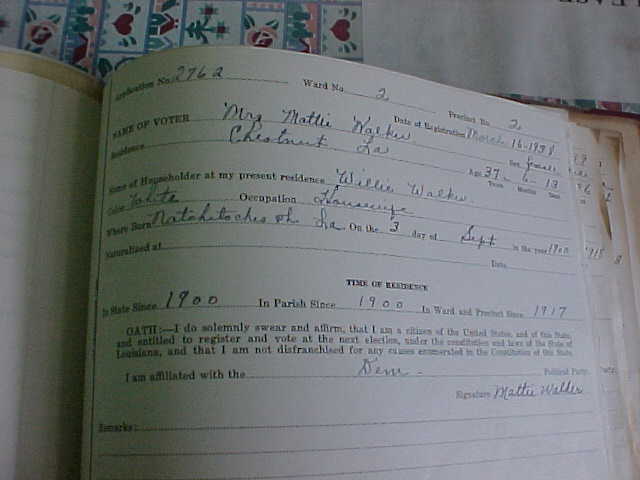 Application No. 276a Ward No. 2 Precinct No. 2
NAME OF VOTER Mrs Mattie Walker Date of Registration March 16-1938
Residence Chestnut La Sex female
Age 37 Years 6 Months 13 Days
Name of Householder at my present residence Willie Walker
Color White Occupation Housewife
Where Born Natchitoches Ph La. On the 3 day of Sept in the year 1900
Naturalized at Date
TIME OF RESIDENCE
In State Since 1900 In Parish Since 1900 In Ward and Precinct Since 1917
OATH:—I do solemnly swear and affirm, that I am a citizen of the United States, and of this State,
and entitled to register and vote at the next election, under the constitution and laws of the State of
Louisiana, and that I am not disfranchised for any causes enumerated in the Constitution of this State.
I am affiliated with the Dem - Political Party.
Signature Mattie Walker
Remarks: